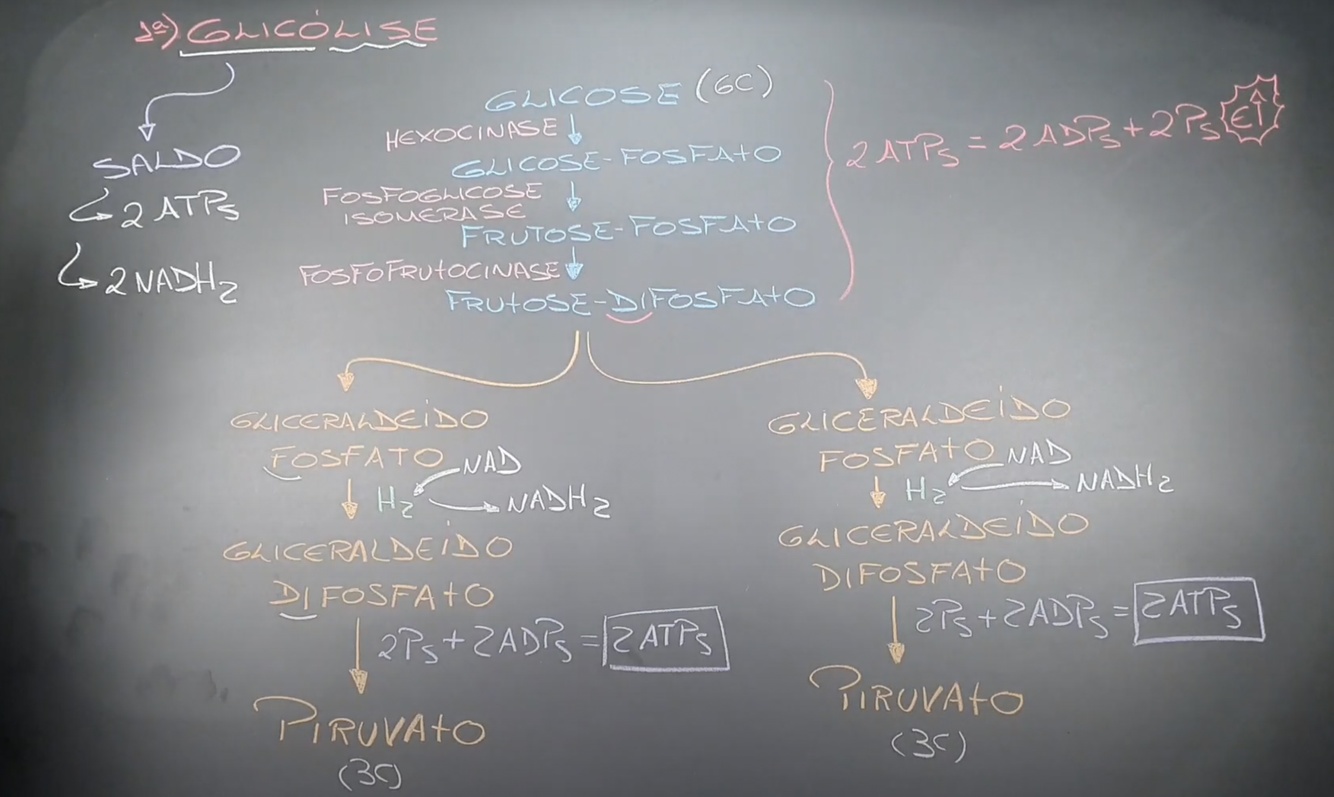 1ª) GLICÓLISE
SALDO
2 ATPs
2 NADH2
GLICOSE (6C)
HEXOCINASE
GLICOSE-FOSFATO
FOSFOGLICOSE
ISOMERASE
FRUTOSE-FOSFATO
FOSFOFRUTOCINASE
FRUTOSE-DIFOSFATO
2 ATPs = 2 ADPs + 2Ps E↑
GLICERALDEÍDO
FOSFATO NAD
H2 NADH2
GLICERALDEÍDO
DIFOSFATO
2Ps + 2ADPs = 2ATPs
PIRUVATO
(3C)
GLICERALDEÍDO
FOSFATO NAD
H2 NADH2
GLICERALDEÍDO
DIFOSFATO
2Ps + 2ADPs = 2ATPs
PIRUVATO
(3C)